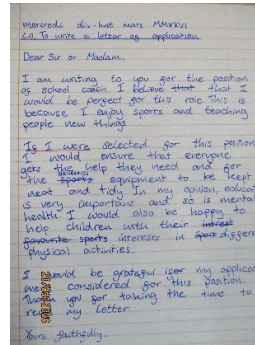 mercredi dix-huit mars MMXXVI
L.O. To write a letter of application.
Dear Sir or Madam,
I am writing to you for the position
of school coach. I believe that that I
would be perfect for this role. This is
because I enjoy sports and teaching
people new things.
If I were selected for this position
I would ensure that everyone
gets the help they need and for
the sports equipment to be kept
neat and tidy. In my opinion,
is very important and so is mental
health. I would also be happy to
help children with their
favourite sports interests in sport
physical activities.
I would be grateful for my
were considered for this position.
Thank you for taking the time to
read my letter.
Yours faithfully,